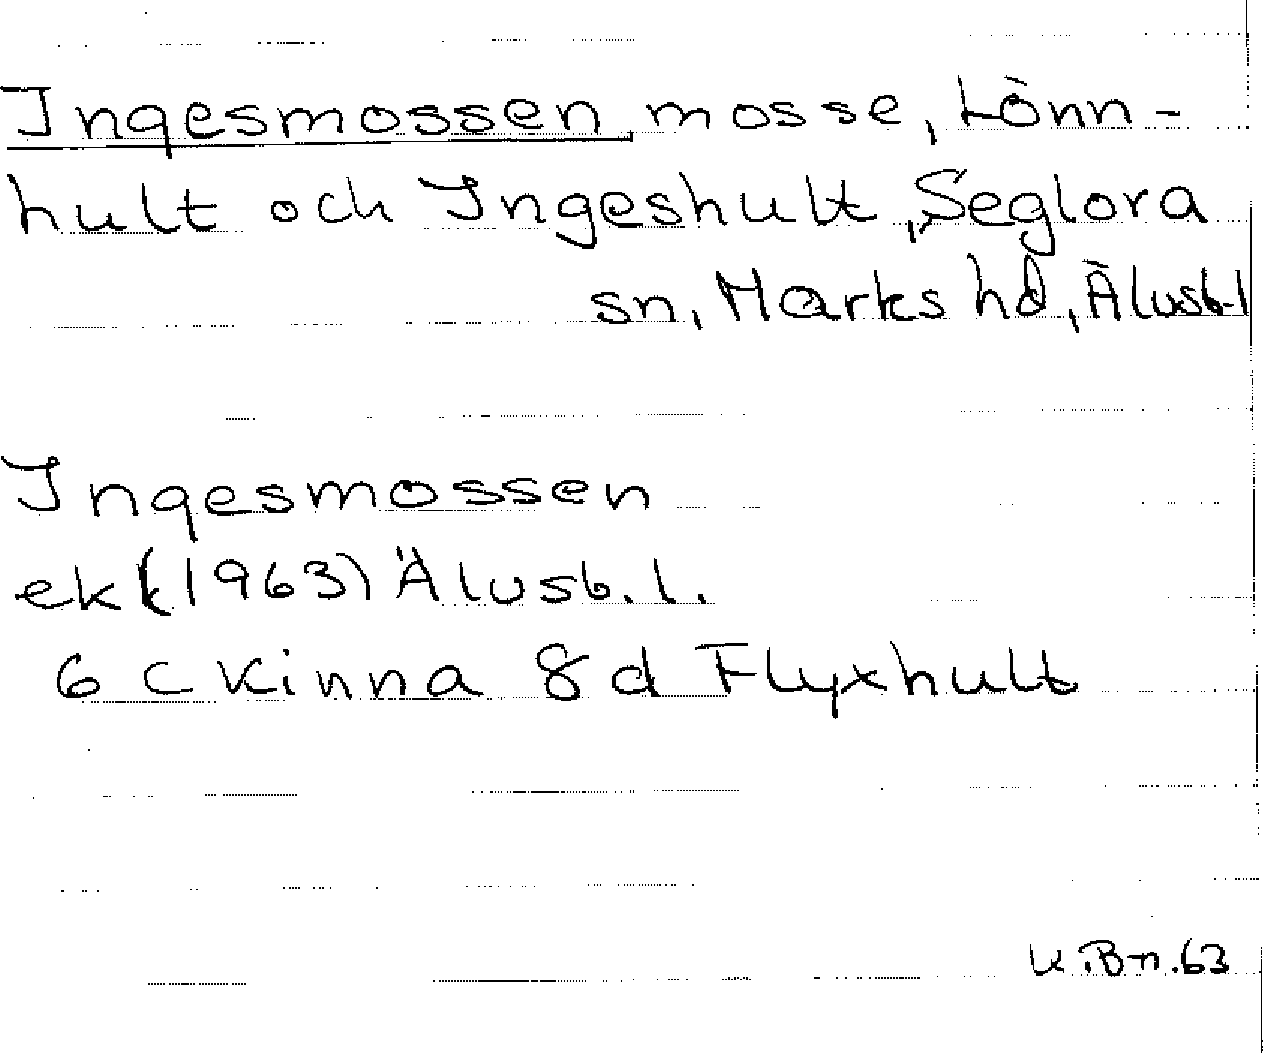 Ingesmossen mosse, Lönn-
hult och Ingeshult, Seglora
sn, Marks hd, Älvsb.l
Ingesmossen
ekk(1963) Älvsb.l.
6 C Kinna 8 d Flyxhult
K.Bn.63